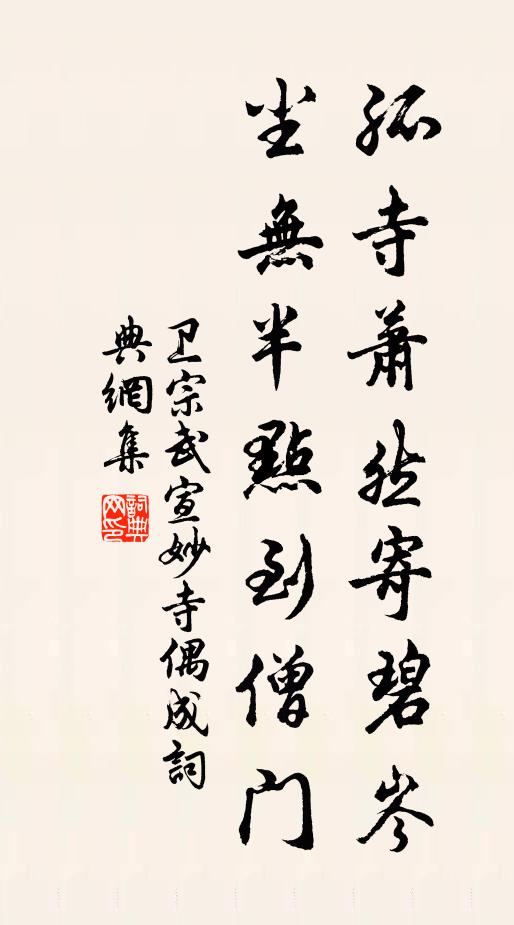 孤寺萧然寄碧岑
尘無半點到僧门
卫宗武宣妙寺偶成詞
典網集
詞典
网印